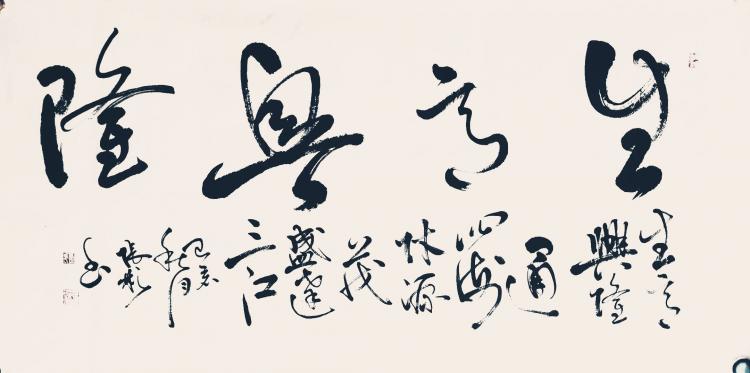 生意興隆
生意
興隆
通
四海
财源
茂
盛達
三江
己亥
秋月
书